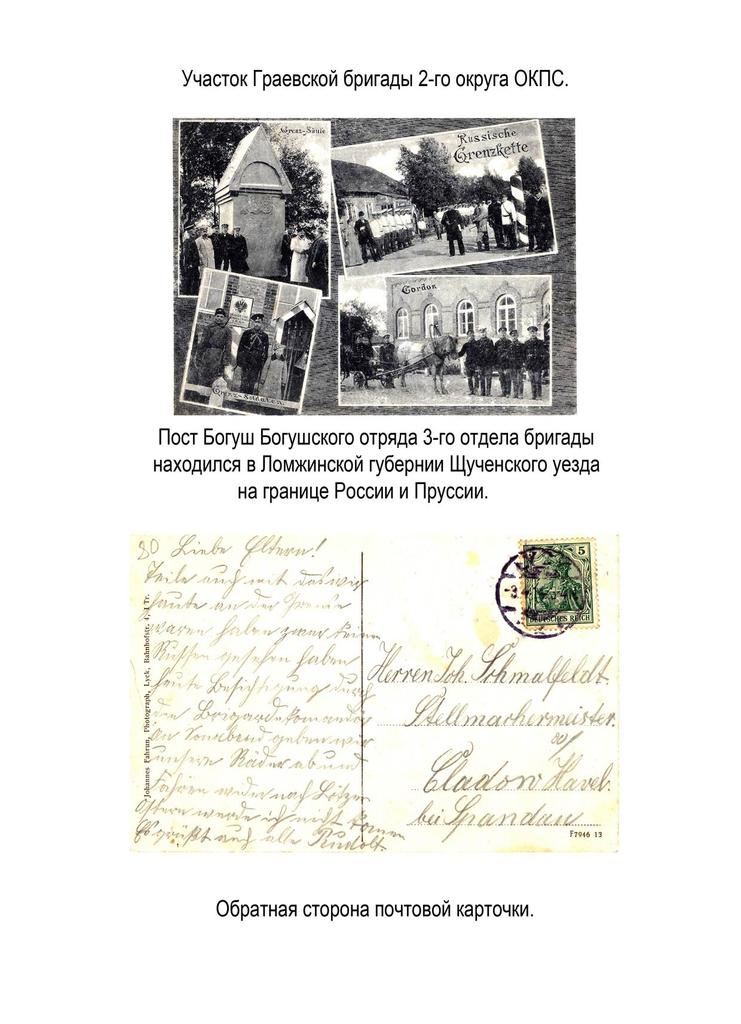 Участок Граевской бригады 2-го округа ОКПС.
Grenz-Säule
Russische
Grenzkette
Cordon
Grenz-Soldaten
Пост Богуш Богушского отряда 3-го отдела бригады
находился в Ломжинской губернии Щученского уезда
на границе России и Пруссии.
Liebe Eltern!
Teile euch mit das wir
heute an der Grenze
waren haben zwar keinen
Russen gesehen haben
heute Besichtigung durch
den Brigardekomandör
An Sonabend geben wir
unsere Räder ab und
fahren wieder nach Lötzen
Ostern werde ich nicht komen
Es grüßt euch alle Rudolf.
Johannes Fahrun, Photograph, Lyck, Bahnhofstr. 4, I Tr.
5
DEUTSCHES REICH
Herren Joh. Schmalfeldt.
Stellmachermeister.
Cladow Havel.
bei Spandau
F7946 13
Обратная сторона почтовой карточки.